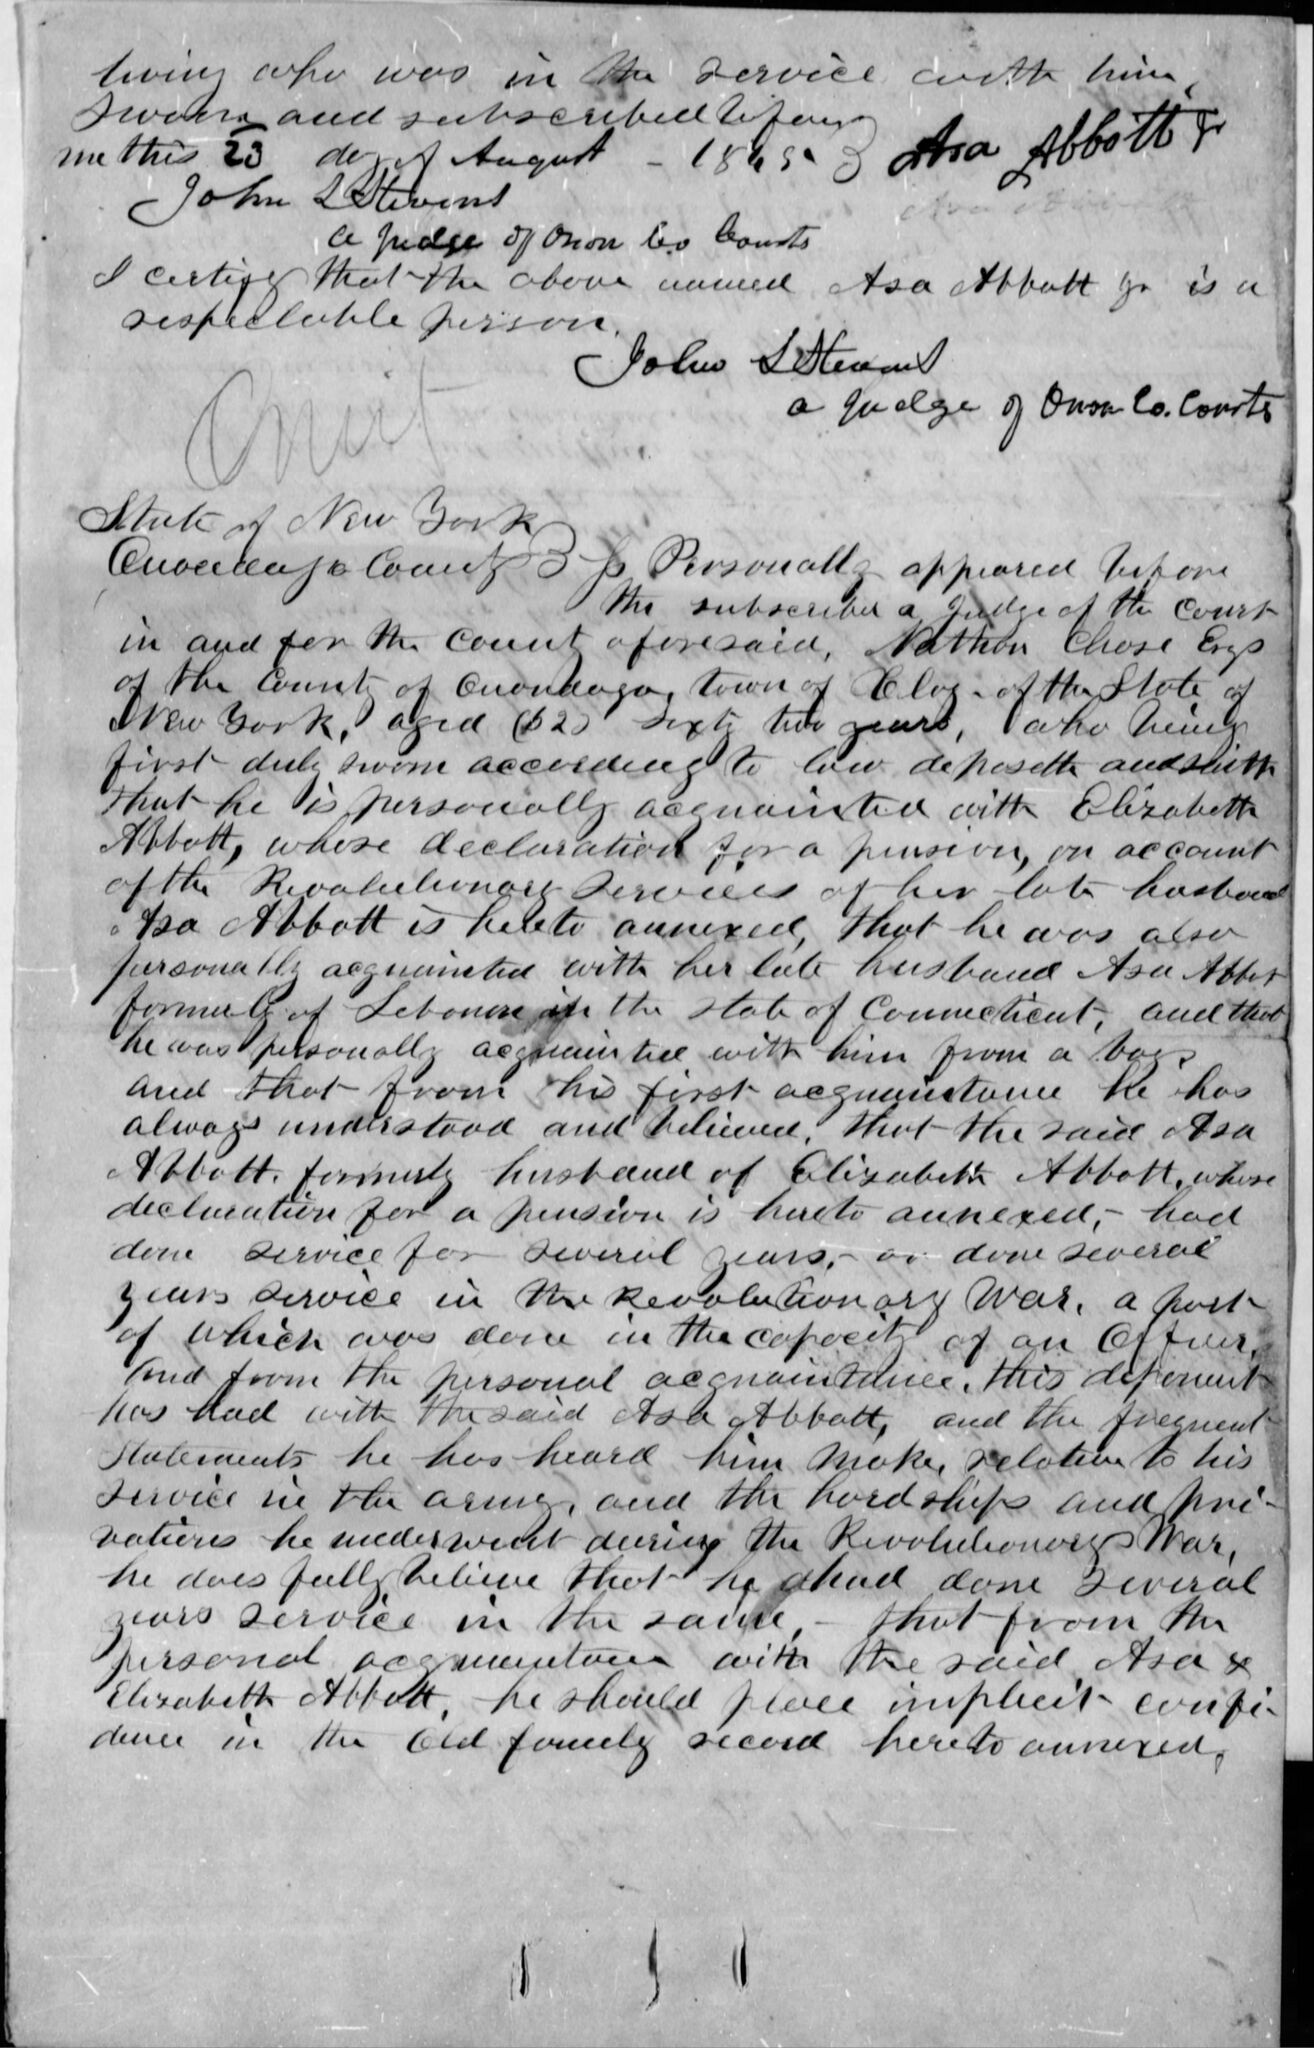 living who was in the service with him,
Sworn and subscribed before
me this 23 day of August - 1845. Asa Abbott Jr
John L Stevens
a judge of Onon Co Courts
I certify that the above named Asa Abbott Jr is a
respectable person.
John L Stevens
a judge of Onon Co. Courts
Omit
State of New York
Onondaga County } ss Personally appeared before
the subscriber a Judge of the Court
in and for the County aforesaid, Nathan Chase Esqr
of the County of Onondaga, town of Elbg. of the State of
New York, aged (62) sixty two years, who being
first duly sworn according to law deposeth and saith
that he is personally acquainted with Elizabeth
Abbott, whose declaration for a pension, on account
of the Revolutionary Services of her late husband
Asa Abbott is hereto annexed, that he was also
personally acquainted with her late husband Asa Abbot
formerly of Lebanon in the state of Connecticut, and that
he was personally acquainted with him from a boy,
and that from his first acquaintance he has
always understood and believed, that the said Asa
Abbott. formerly husband of Elizabeth Abbott, whose
declaration for a pension is hereto annexed,- had
done service for several years,- or done several
years service in the Revolutionary War, a part
of which was done in the capacity of an Officer,
and from the personal acquaintance, this deponent
has had with the said Asa Abbott, and the frequent
statements he has heard him make, relative to his
service in the army, and the hardships and pri-
vations he underwent during the Revolutionary War,
he does fully believe that he had done several
years service in the same,- that from the
personal acquaintance with the said Asa &
Elizabeth Abbott, he should place implicit confi-
dence in the old family record hereto annexed,